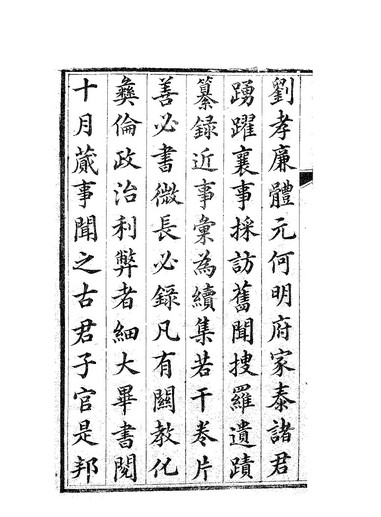 劉孝廉體元何明府家泰諸君
踴躍襄事採訪舊聞搜羅遺蹟
纂録近事彙為續集若干巻片
善必書微長必録凡有關教化
彝倫政治利弊者細大畢書閱
十月蕆事聞之古君子官是邦